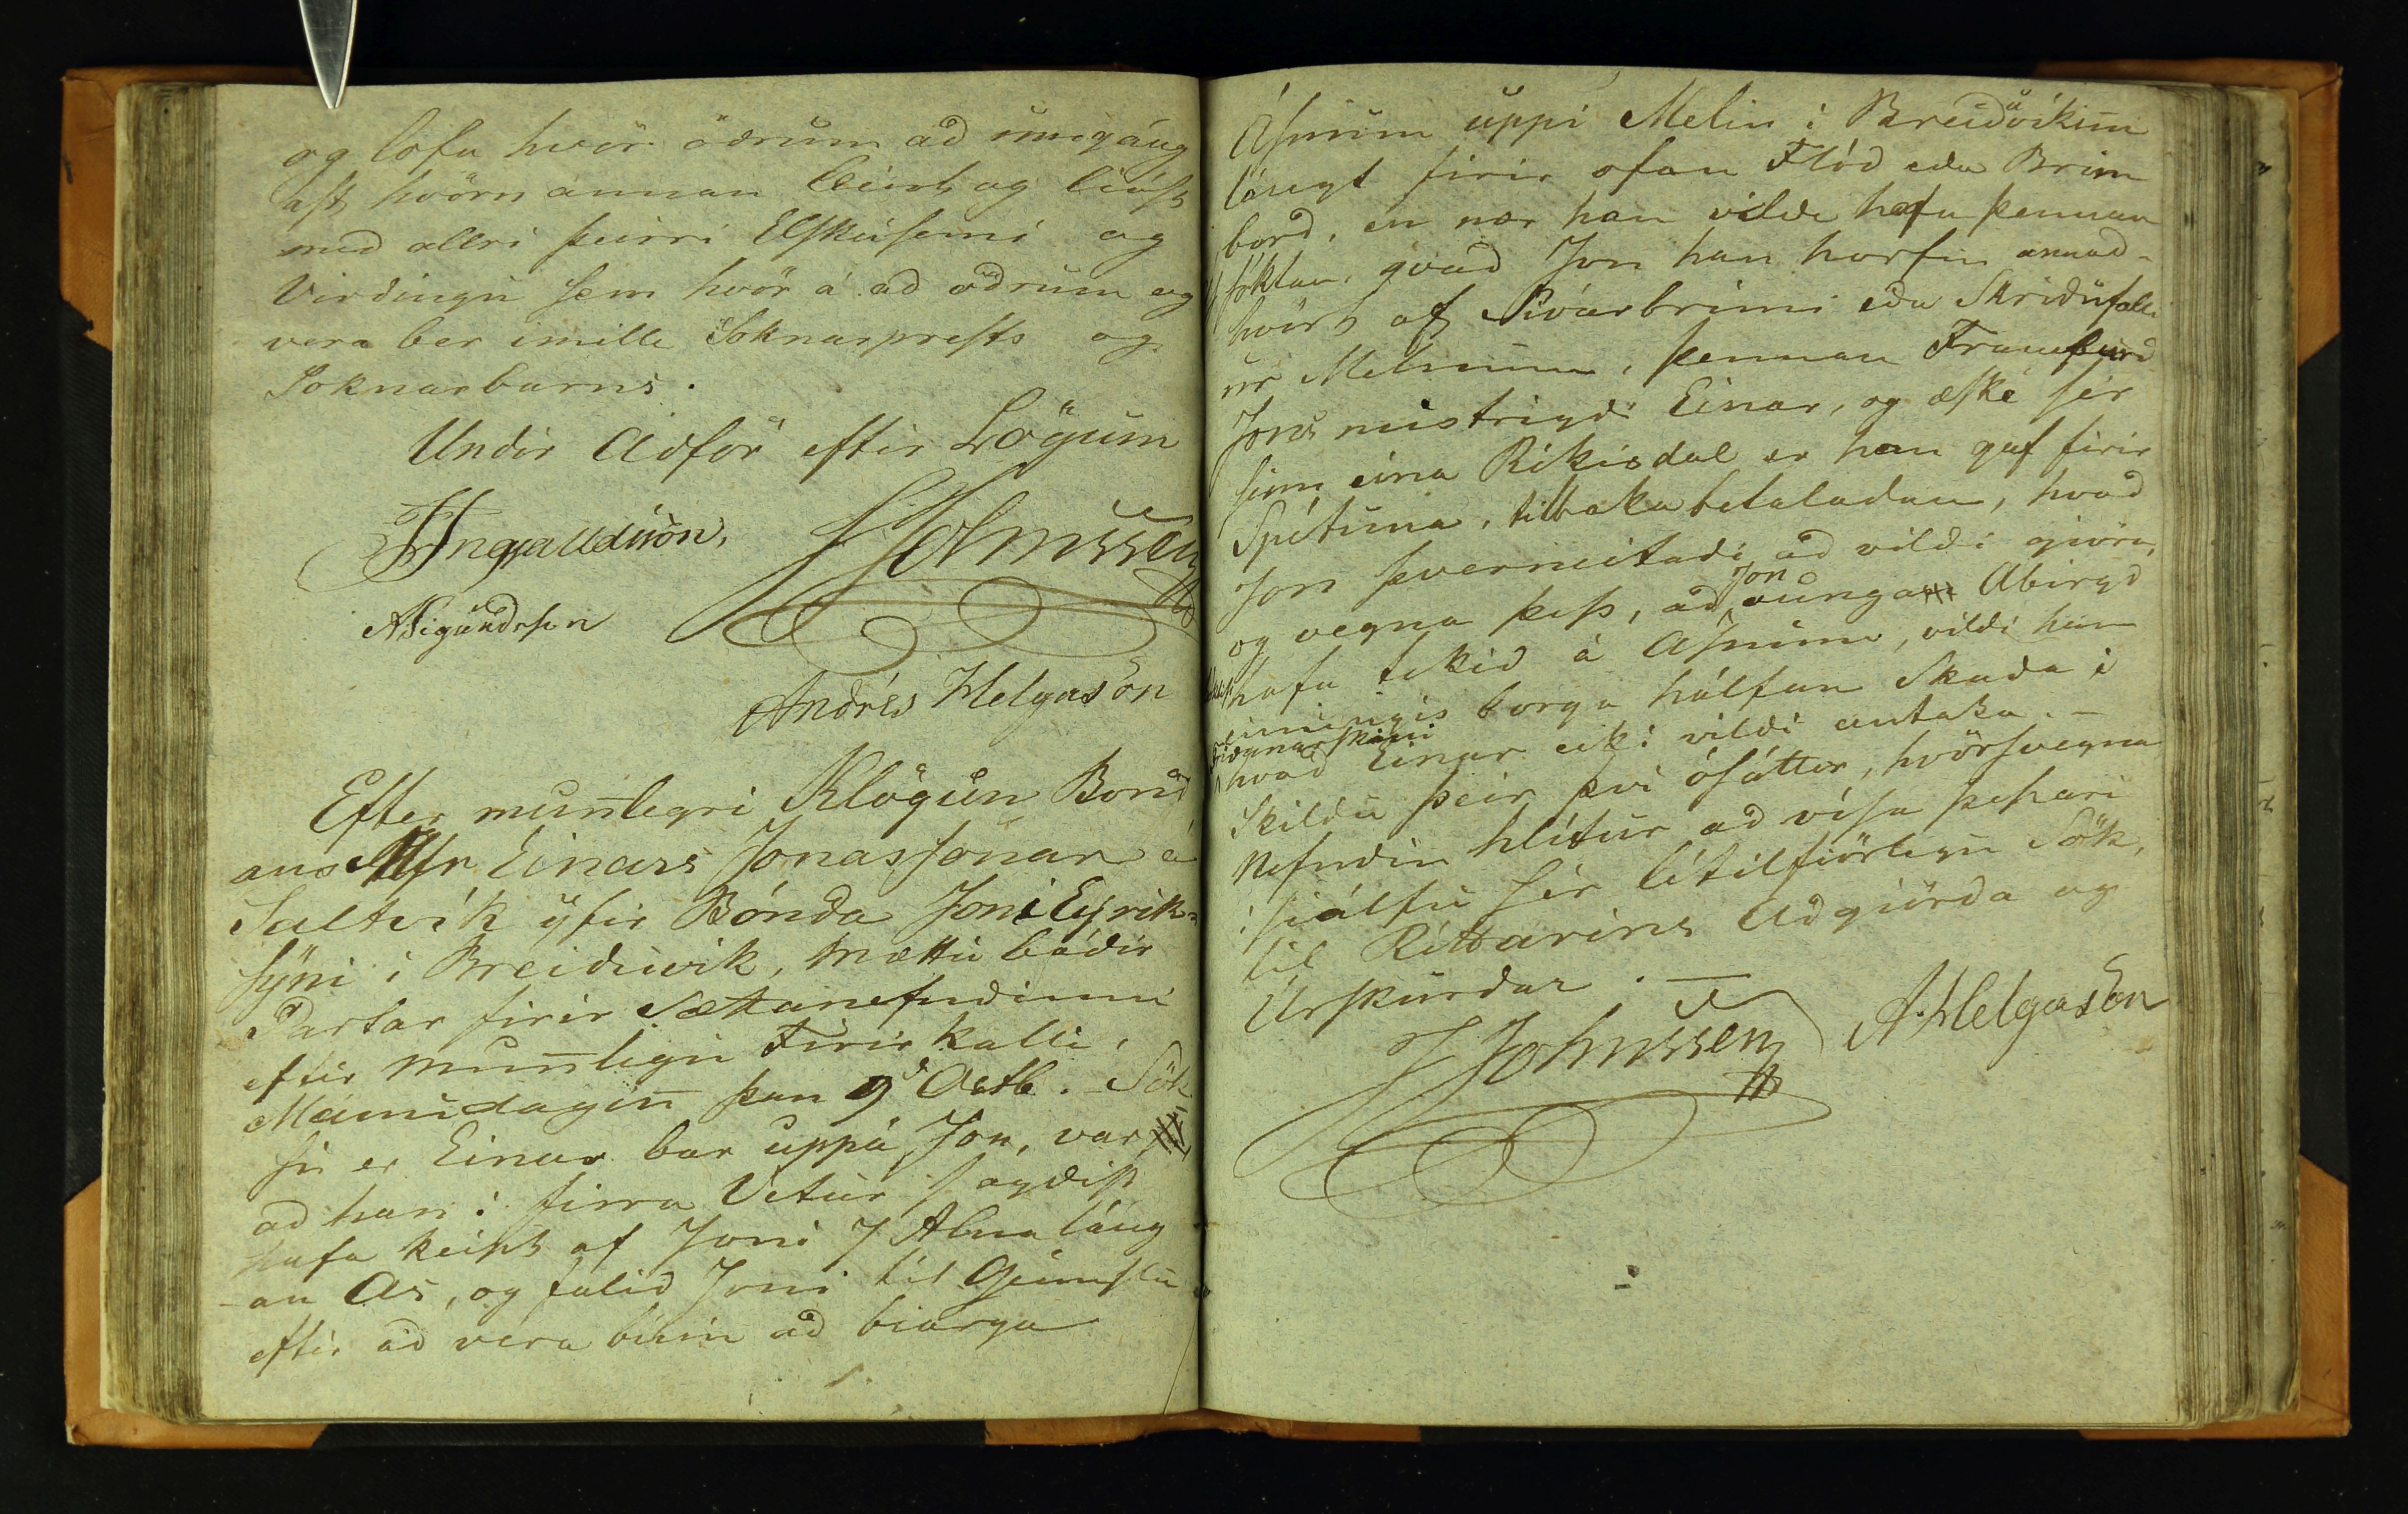 og lofa hvör öðrum ad umgáng
ast hvörn annan Leint og lióst
med allri þeirri Elskusemi og
Virðingu sem hvör á ad odrum og
vera ber imille Soknarprests og
Soknarbarns.
Undir Adför eftir Lögum
JIngjalldsson,
JJohnssen
ASigurdsson
Andrés Helgason
Efter munlegri Klögun Bond
ans Mr Einars Jonassonar á
Saltvík yfir Bónda Joni Eyrik-
syni i Breiduvik, mættu bádir
Partar firir Sættanefndinni
eftir munlegu Firirkalli,
Manudagin þan 9d Octb. Sök
su er Einar bar uppá Jon, var
ad han i firra Vetur sagdist
hafa keipt af Joni 7 Alna láng
-an As, og falid Joni til Geimslu
eftir ad vera buin ad biarga
Ásnum uppi Melin i Breiduvikum
lángt firir ofan Flód eda Brim
bord, en nær han vilde hafa þennan
sóktan, qvad Jon han horfin annad-
hvört af Siovarbrimi eda Skridufalli
ur Melnum, þennan Framburd
Jons mistrigdi Einar, og æskte sér
sinn eina Rikisdal er han gaf firir
Spituna, tilbaka betaladan, hvad
Jon þverneitadi ad vildi giöra,
og vegna þess, ad Jon aunga Abirgd
hafa tekid á Asnum, vildi han
einungis borga hálfan Skada i
Giegnarskini
hvad Einar eiki vildi antaka. -
Skildu þeir því ósátter, hvörsvegna
Nefndin hlítur ad vísa þessari
i siálfu sér lítilfiörlegu Sök,
til Réttarins Adgiörda og
Úrskurdar. -
JJohnssen
A. Helgason